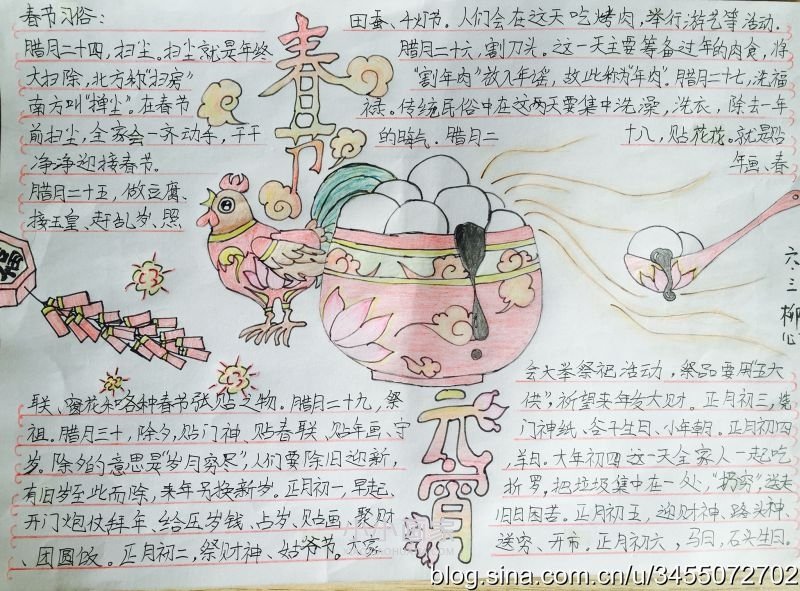 春节
春节习俗:
腊月二十四,扫尘。扫尘就是年终
大扫除,北方称"扫房"
南方叫"掸尘"。在春节
前扫尘,全家会一齐动手,干干
净净迎接春节。
腊月二十五,做豆腐、
接玉皇、赶乱岁、照
田蚕、千灯节。人们会在这天吃烤肉,举行游艺等活动.
腊月二十六,割刀头。这一天主要筹备过年的肉食,将
"割年肉"放入年谣,故此称为"年肉"。腊月二十七,洗福
禄。传统民俗中在这两天要集中洗澡,洗衣,除去一年
的晦气.腊月二
十八,贴花花。就是贴
年画、春
联、窗花和各种春节张贴之物。腊月二十九,祭
祖。腊月三十,除夕,贴门神、贴春联、贴年画、守
岁。除夕的意思是"岁月穷尽",人们要除旧迎新,
有旧岁至此而除,来年另换新岁。正月初一,早起、
开门炮仗拜年、给压岁钱、占岁、贴画、聚财
、团圆饭。正月初二,祭财神、姑爷节。大家
会大举祭祀活动,祭品要用"五大
供",祈望来年发大财。正月初三,烧
门神纸、谷子生日、小年朝。正月初四
,羊日。大年初四这一天全家人一起吃
折罗,把垃圾集中在一处,"扔穷"送走
旧日困苦。正月初五,迎财神、路头神、
送穷、开市,正月初六,马日,石头生日。
元宵
福
六.三 柳心
blog.sina.com.cn/u/3455072702